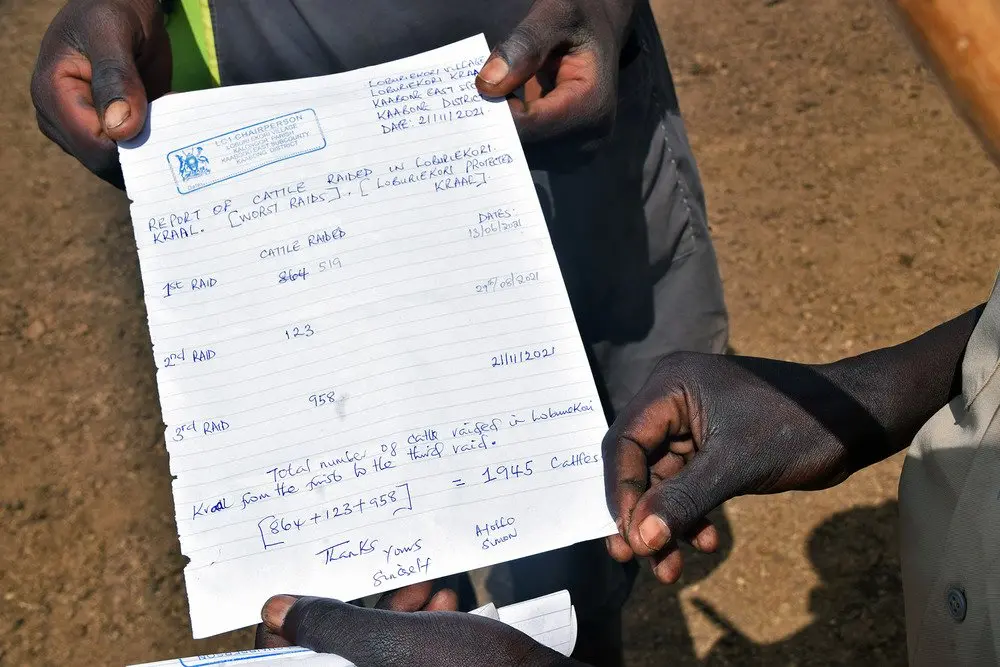 LOBURIEKORI VILLAGE
LOBURIEKORI KRAAL
KAABONG EAST
KAABONG DISTRICT
DATE: 21/11/2021
LC1 CHAIRPERSON
LOBURIEKORI VILLAGE
PARISH
KAABONG EAST SUBCOUNTY
KAABONG DISTRICT
REPORT OF CATTLE RAIDED IN LOBURIEKORI
KRAAL. [WORST RAIDS]. [LOBURIEKORI PROTECTED
KRAAL].
CATTLE RAIDED DATES:
1st RAID 864 519 13/06/2021
2nd RAID 123 29th/08/2021
3rd RAID 958 21/11/2021
Total number of cattle raided in Loburiekori
Kraal from the first to the third raid.
[864+123+958] = 1945 Cattles
Thanks yours Ayollo
Simon